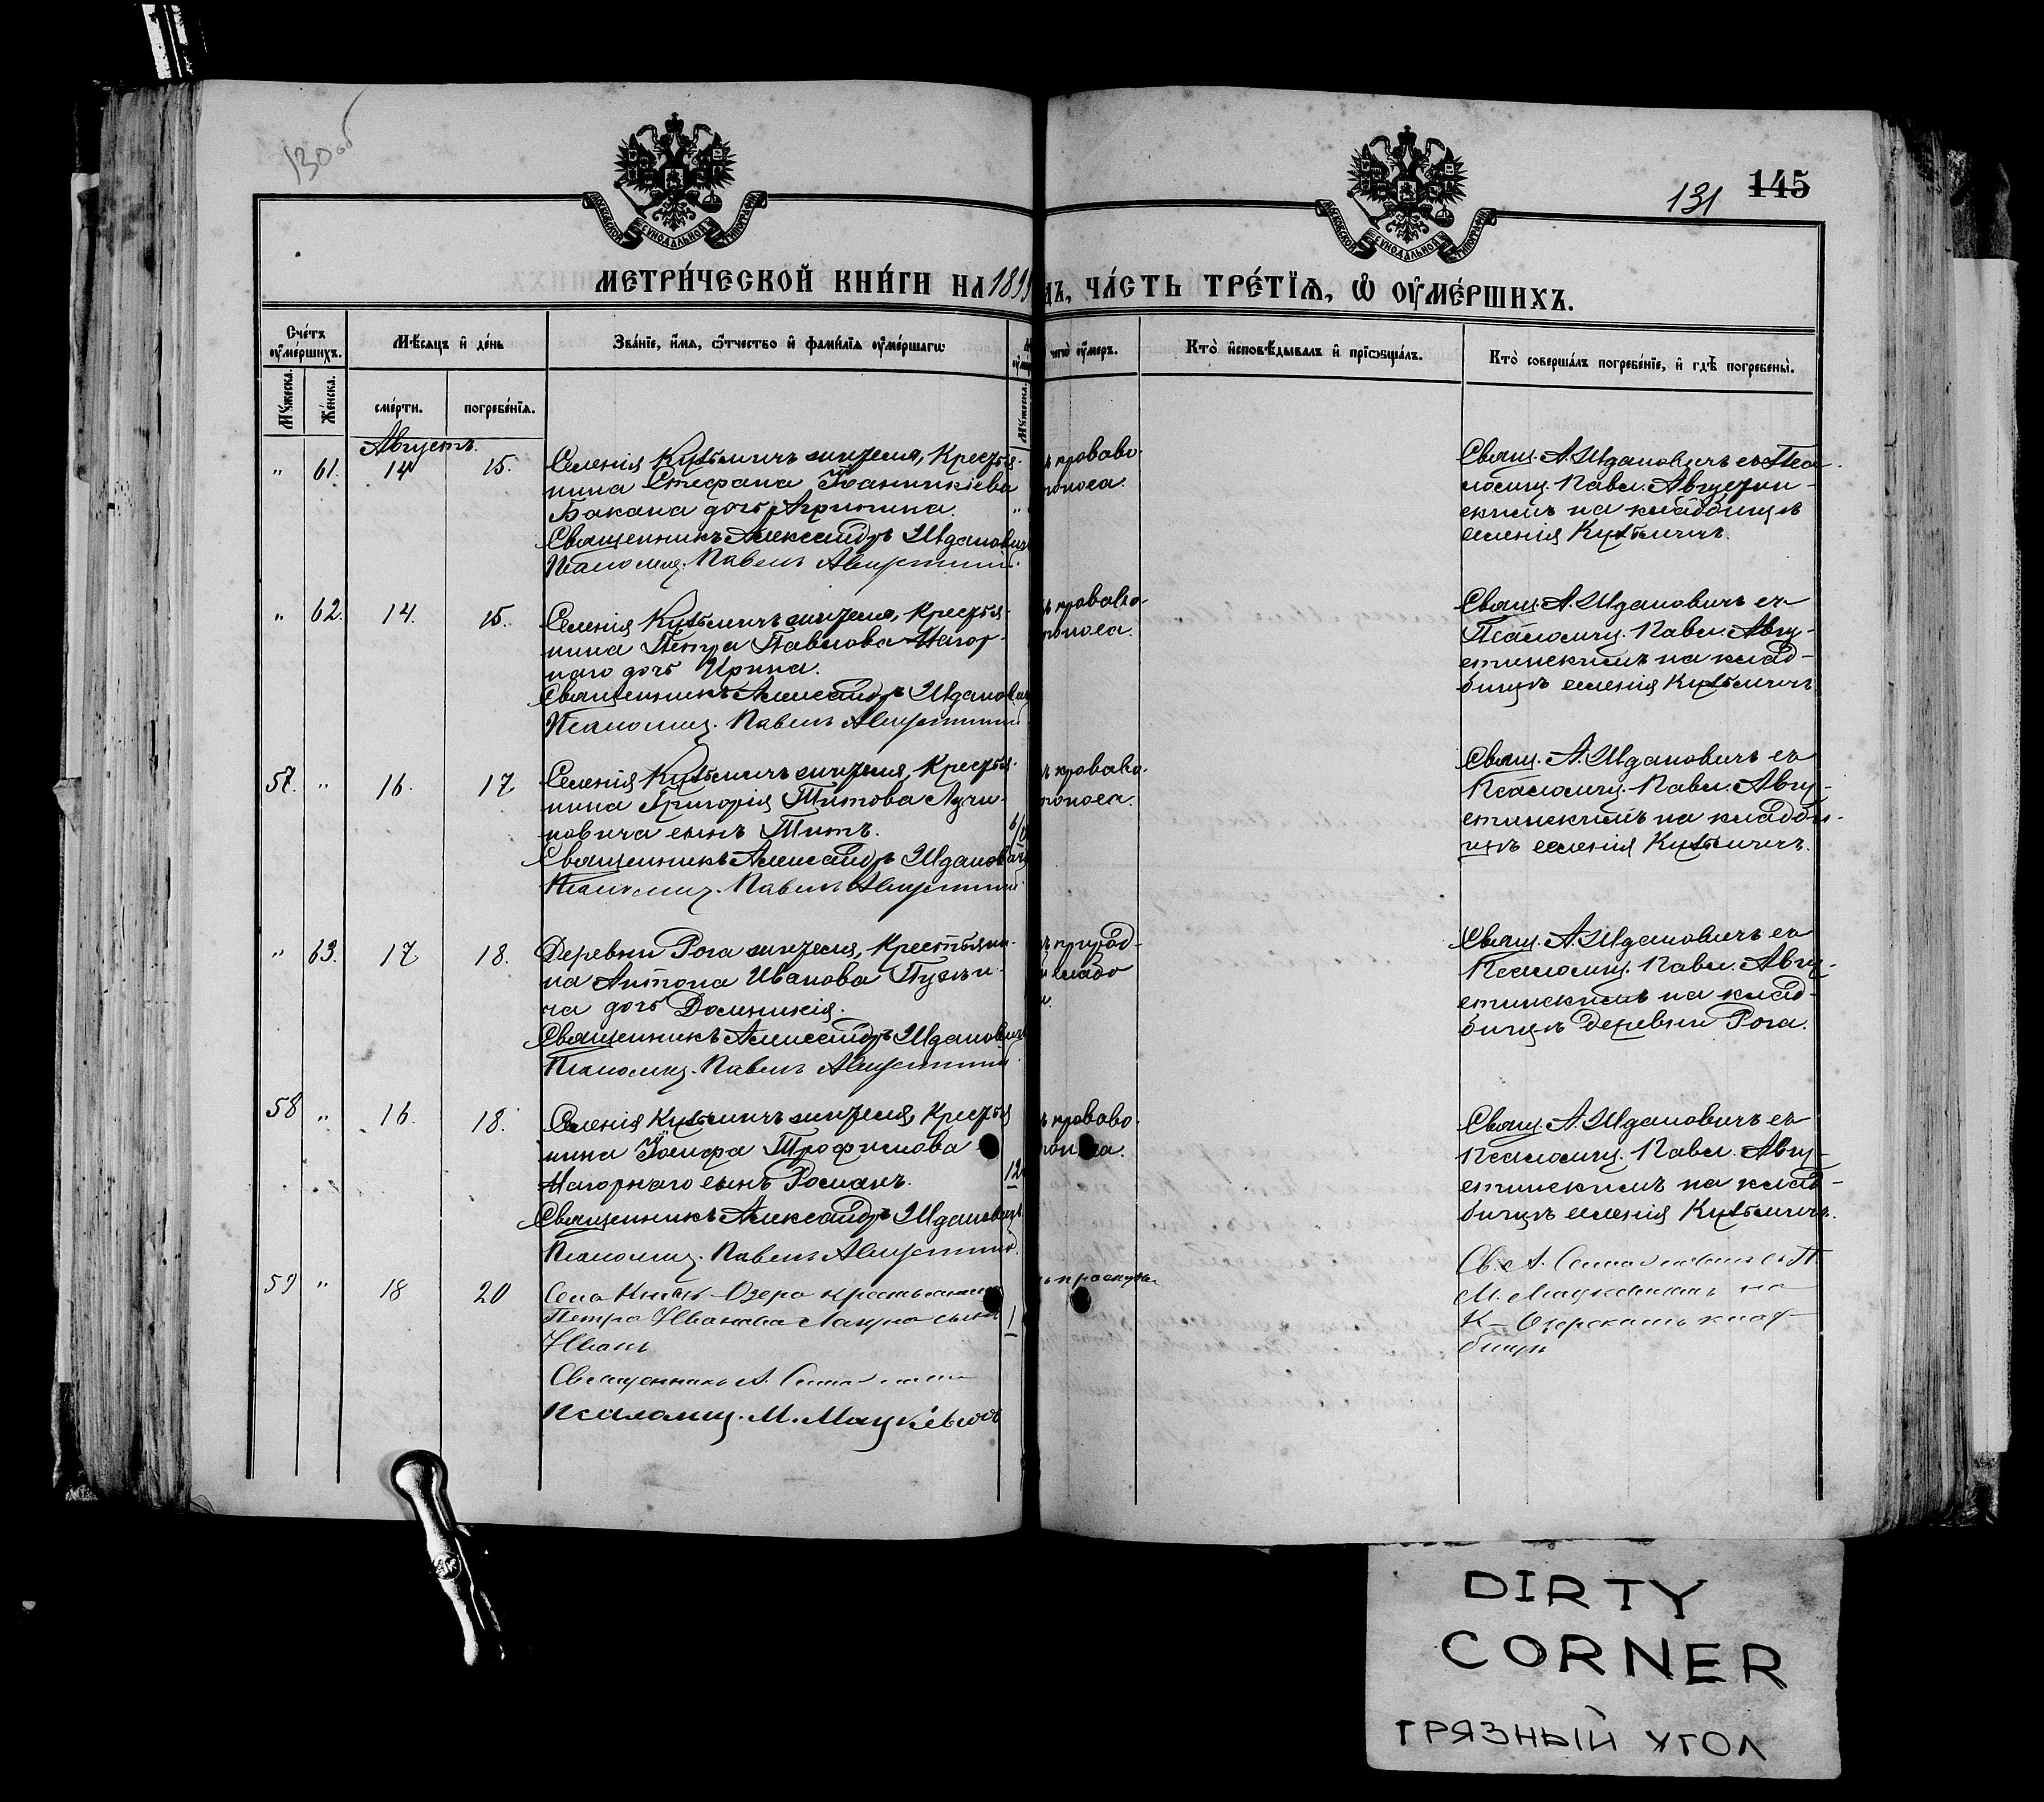 130 об
131 145
МОСКОВСКОЙ СѴНОДАЛЬНОЙ ТИПОГРАФІИ
МОСКОВСКОЙ СѴНОДАЛЬНОЙ ТИПОГРАФІИ
МЕТРИ́ЧЕСКОЙ КНИ́ГИ НА 1899
ДЪ, ЧА́СТЬ ТРЕ́ТІѦ, Ѽ ОУМЕ́РШИХЪ.
Счётъ оумершихъ.
Мѣсяцъ и день
Званіе, имя, ѻтчество и фамилія оумершагѡ
чегѡ оумеръ.
Кто исповѣдывалъ и пріобщалъ.
Кто совершалъ погребеніе, и гдѣ погребены.
Мужеска.
Женска.
смерти.
погребенія.
Мужеска.
Августъ.
" 61. 14 15.
Селенія Кутьмичъ жителя, Крестья-
нина Стефана Іоанникіева
Бакана дочь Агрипина.
Священникъ Александръ Ждановичъ
Псаломщ. Павелъ Августин
кроваво-
поноса.
Свящ. А. Ждановичъ съ Пса-
ломщ. Павл. Августин-
скимъ на кладбищѣ
селенія Кутьмичъ.
" 62. 14. 15.
Селенія Кутьмичъ жителя, Крестья-
нина Петра Павлова Нагор-
наго дочь Ирина.
Священникъ Александръ Ждановичъ
Псаломщ. Павелъ Августин
кроваво-
поноса.
Свящ. А. Ждановичъ съ
Псаломщ. Павл. Авгу-
стинскимъ на клад-
бищѣ селенія Кутьмичъ
57. " 16. 17
Селенія Кутьмичъ жителя, Крестья-
нина Григорія Титова Лучи-
новича сынъ Титъ.
Священникъ Александръ Ждановичъ
Псаломщ. Павелъ Августин
кроваво-
поноса.
Свящ. А. Ждановичъ съ
Псаломщ. Павл. Авгу-
стинскимъ на кладби-
щѣ селенія Кутьмичъ.
" 63. 17 18.
Деревни Рога жителя, Крестьяни-
на Антона Иванова
ча дочь Домникія.
Священникъ Александръ Ждановичъ
Псаломщ. Павелъ Августин
природ-
слабо
Свящ. А. Ждановичъ съ
Псаломщ. Павл. Авгу-
стинскимъ на клад-
бищѣ деревни Рога.
58 " 16. 18.
Селенія Кутьмичъ жителя, Крестья
нина Іосифа Трофимова
Нагорнаго сынъ Романъ.
12
Священникъ Александръ Ждановичъ
Псаломщ. Павелъ Августин
кроваво-
Свящ. А. Ждановичъ съ
Псаломщ. Павл. Авгу-
стинскимъ на клад-
бищѣ селенія Кутьмичъ.
59 " 18 20
Села Князь-Озера крестьянина
Петра Иванова сынъ
Иванъ
1
Священникъ А.
Псаломщ. М. Мацкевичъ
Св. А. съ П.
М. Мацкевичемъ на
К-Озерскомъ клад-
бищѣ
DIRTY
CORNER
ГРЯЗНЫЙ УГОЛ